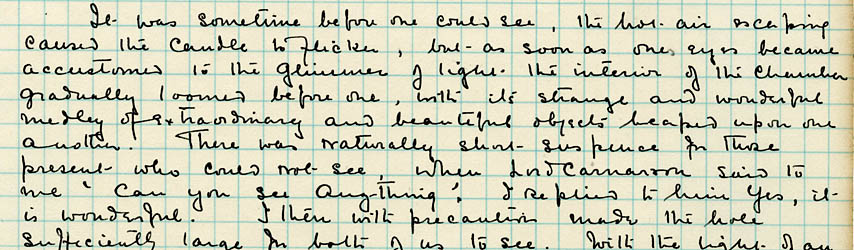 It was sometime before one could see, the hot air escaping
caused the candle to flicker, but as soon as one's eyes became
accustomed to the glimmer of light the interior of the chamber
gradually loomed before one, with its strange and wonderful
medley of extraordinary and beautiful objects heaped upon one
another. There was naturally short suspense for those
present who could not see, when Lord Carnarvon said to
me 'Can you see anything'. I replied to him Yes, it
is wonderful. I then with precaution made the hole
sufficiently large for both of us to see. With the light of an